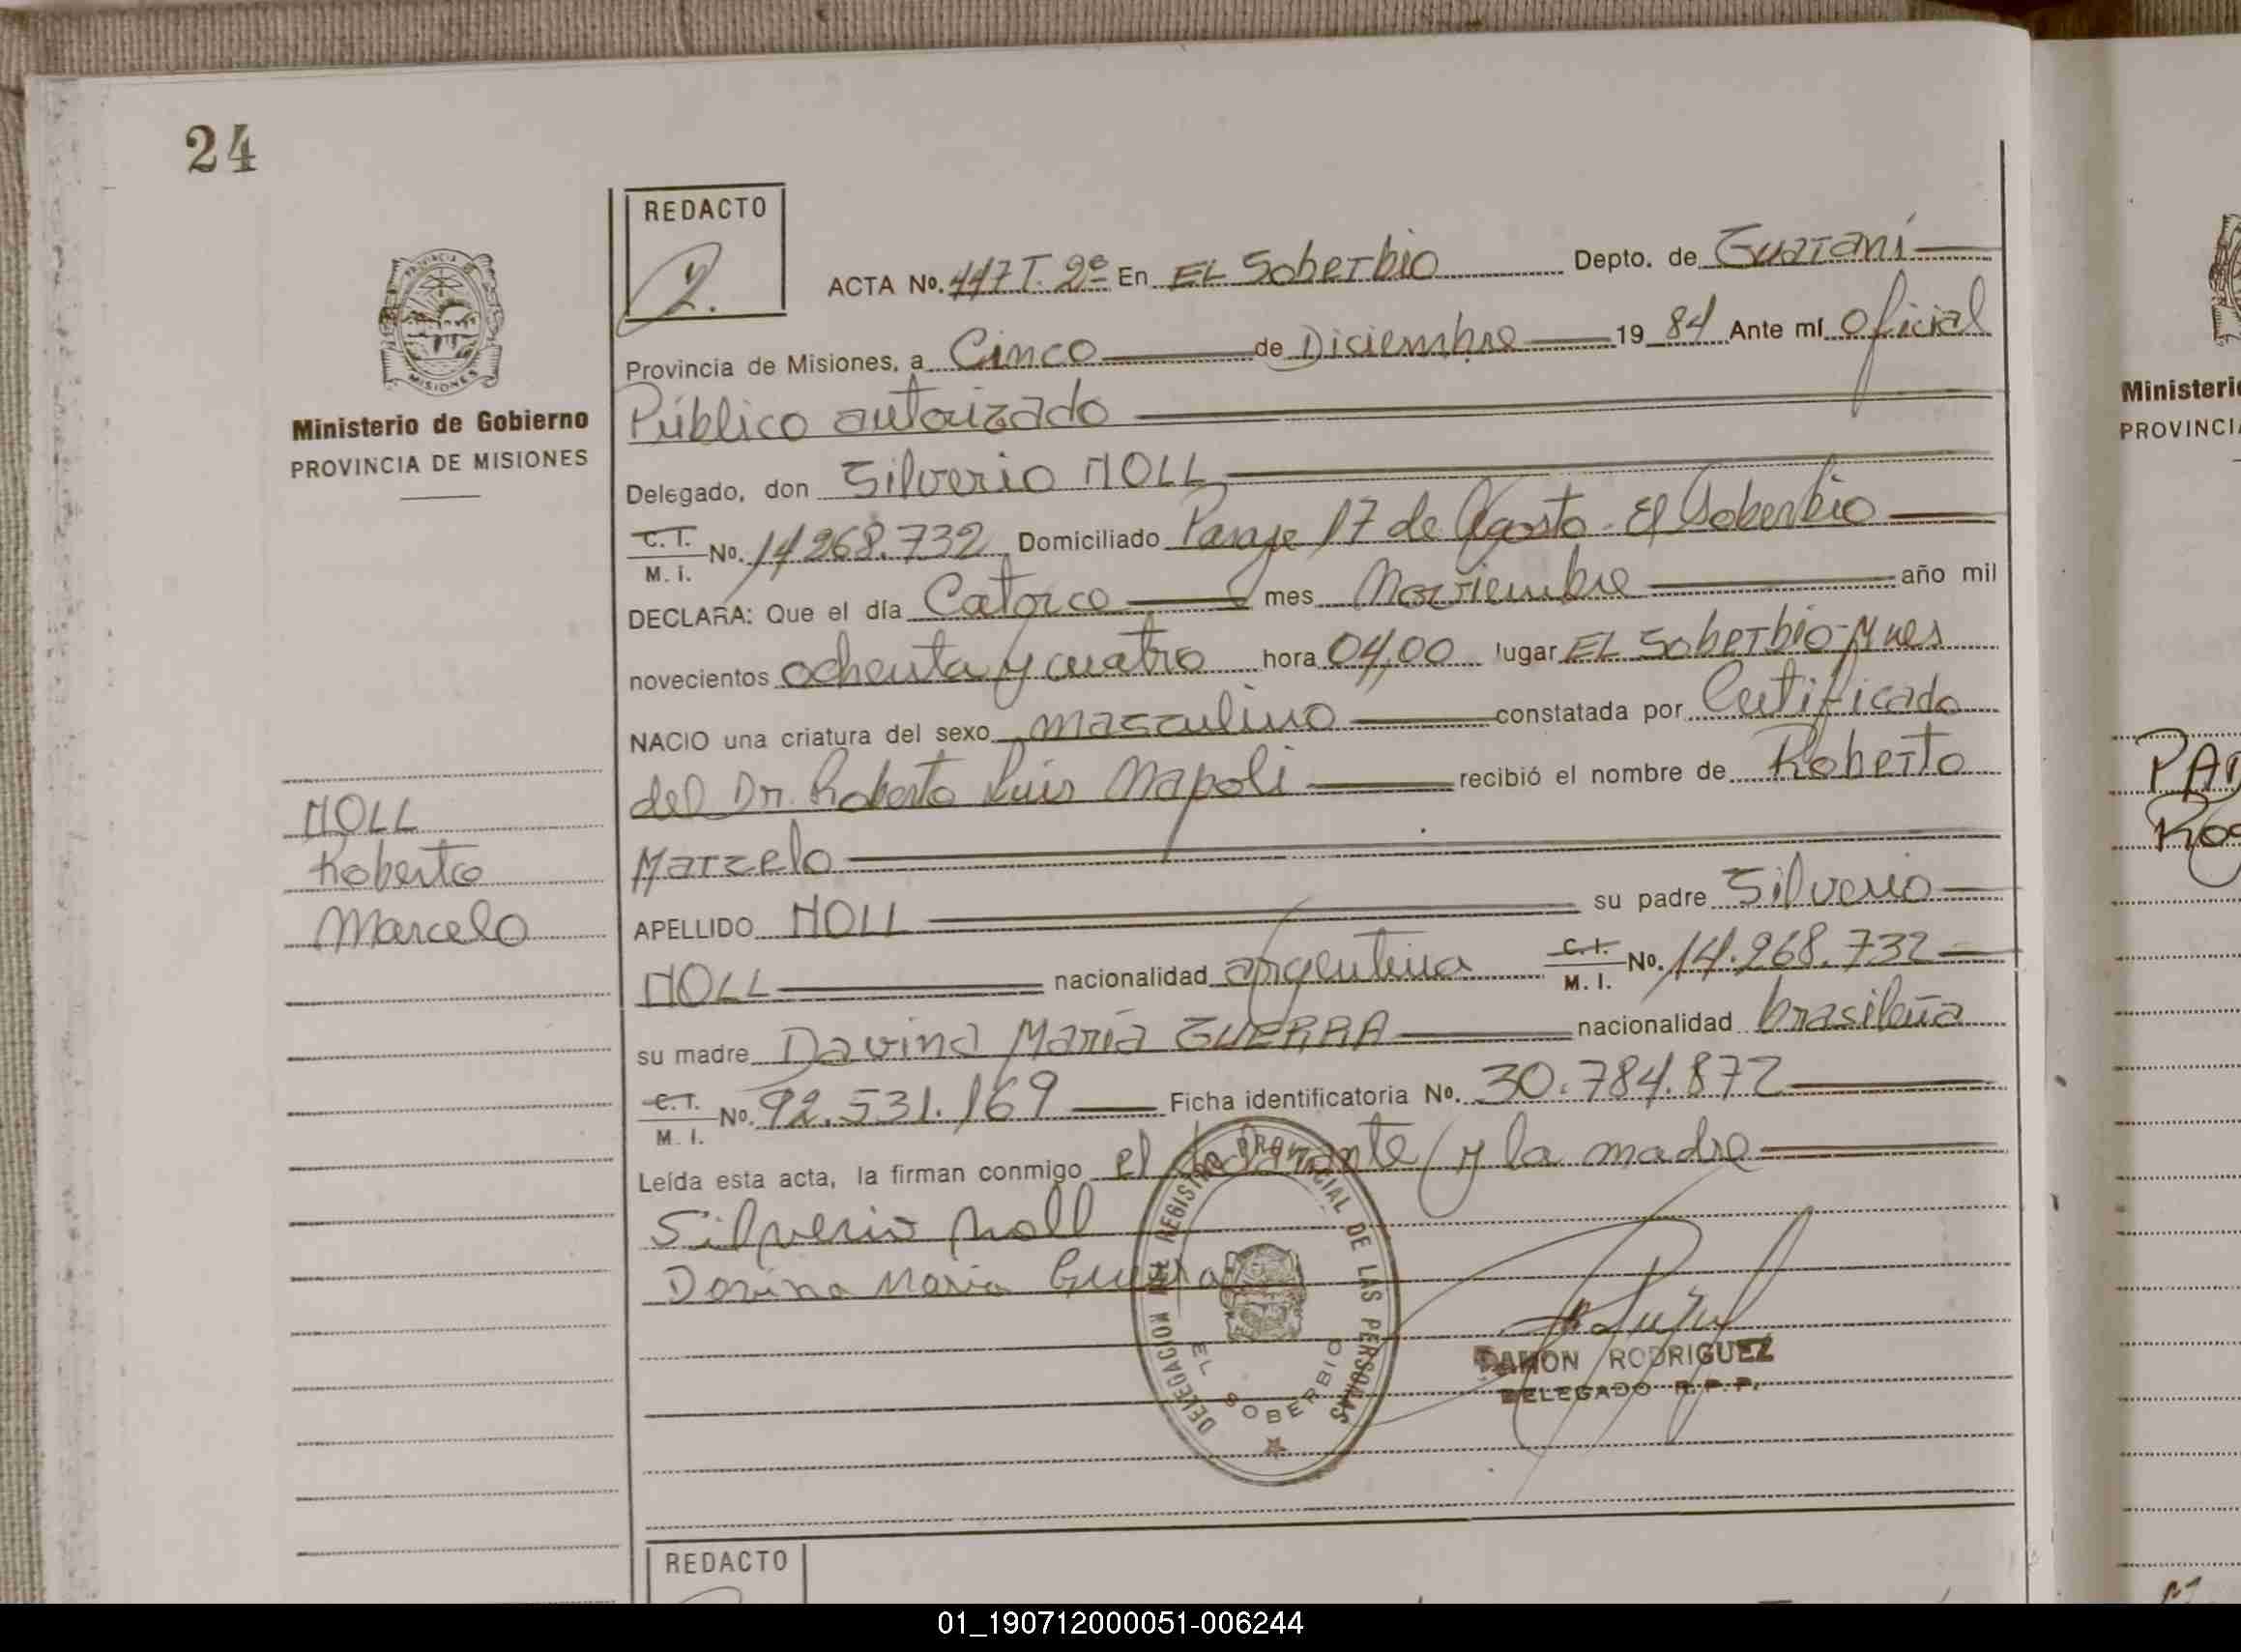 24
REDACTO
2.
PROVINCIA DE
MISIONES
Ministerio de Gobierno
PROVINCIA DE MISIONES
ACTA No. 117 T. 2º En EL Soberbio Depto. de Guaraní
Provincia de Misiones, a Cinco de Diciembre 19 84 Ante mí Oficial
Público autorizado
Delegado, don Silverio NOLL
C.I. M. I. No. 14268.732 Domiciliado Paraje 17 de Agosto - El Soberbio
DECLARA: Que el día Catorce mes Noviembre año mil
novecientos ochenta y cuatro hora 04,00 lugar EL Soberbio-Mnes
NACIO una criatura del sexo masculino constatada por Certificado
del Dr. Roberto Luis Napoli recibió el nombre de Roberto
Marcelo
APELLIDO NOLL su padre Silverio
NOLL nacionalidad argentina C.I. M. I. No. 14.268.732
su madre Davina María GUERRA nacionalidad brasileña
C.I. M. I. No. 92.531.169 Ficha identificatoria No. 30.784.872
Leída esta acta, la firman conmigo el declarante y la madre
Silverio Noll
Davina Maria Guerra
NOLL
Roberto
Marcelo
DELEGACION DEL REGISTRO PROVINCIAL DE LAS PERSONAS
EL SOBERBIO
RAMON RODRIGUEZ
DELEGADO R.P.P.
REDACTO
Ministeri
PROVINCIA
PAD
Ro
01_190712000051-006244